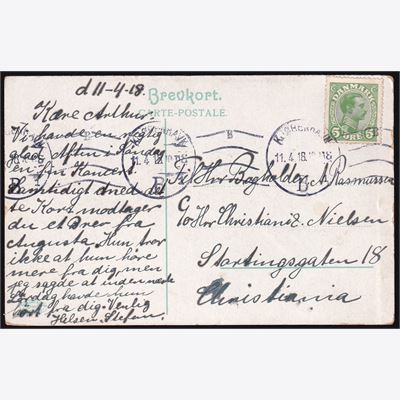 d 11-4-18.
Brevkort.
CARTE-POSTALE.
DANMARK
5 ØRE 5
Kære Arthur.
Vi havde en rigtig
glad Aften i Lørdag
en fin Koncert.
Samtidigt med det
te Kort modtager
du et Brev fra
Augusta. Hun tror
ikke at hun höre
mere fra dig, men
jeg sagde at inden næste
Lørdag havde hun
hört fra dig. Venlig
Hilsen. Stefan.
KJØBENHAVN
11.4.18.
B
KJØBENHAVN
11.4.18.
B
Hr Bogholder A. Rasmussen
c/o Hr Christian Z. Nielsen
Stortingsgaten 18
Christiania